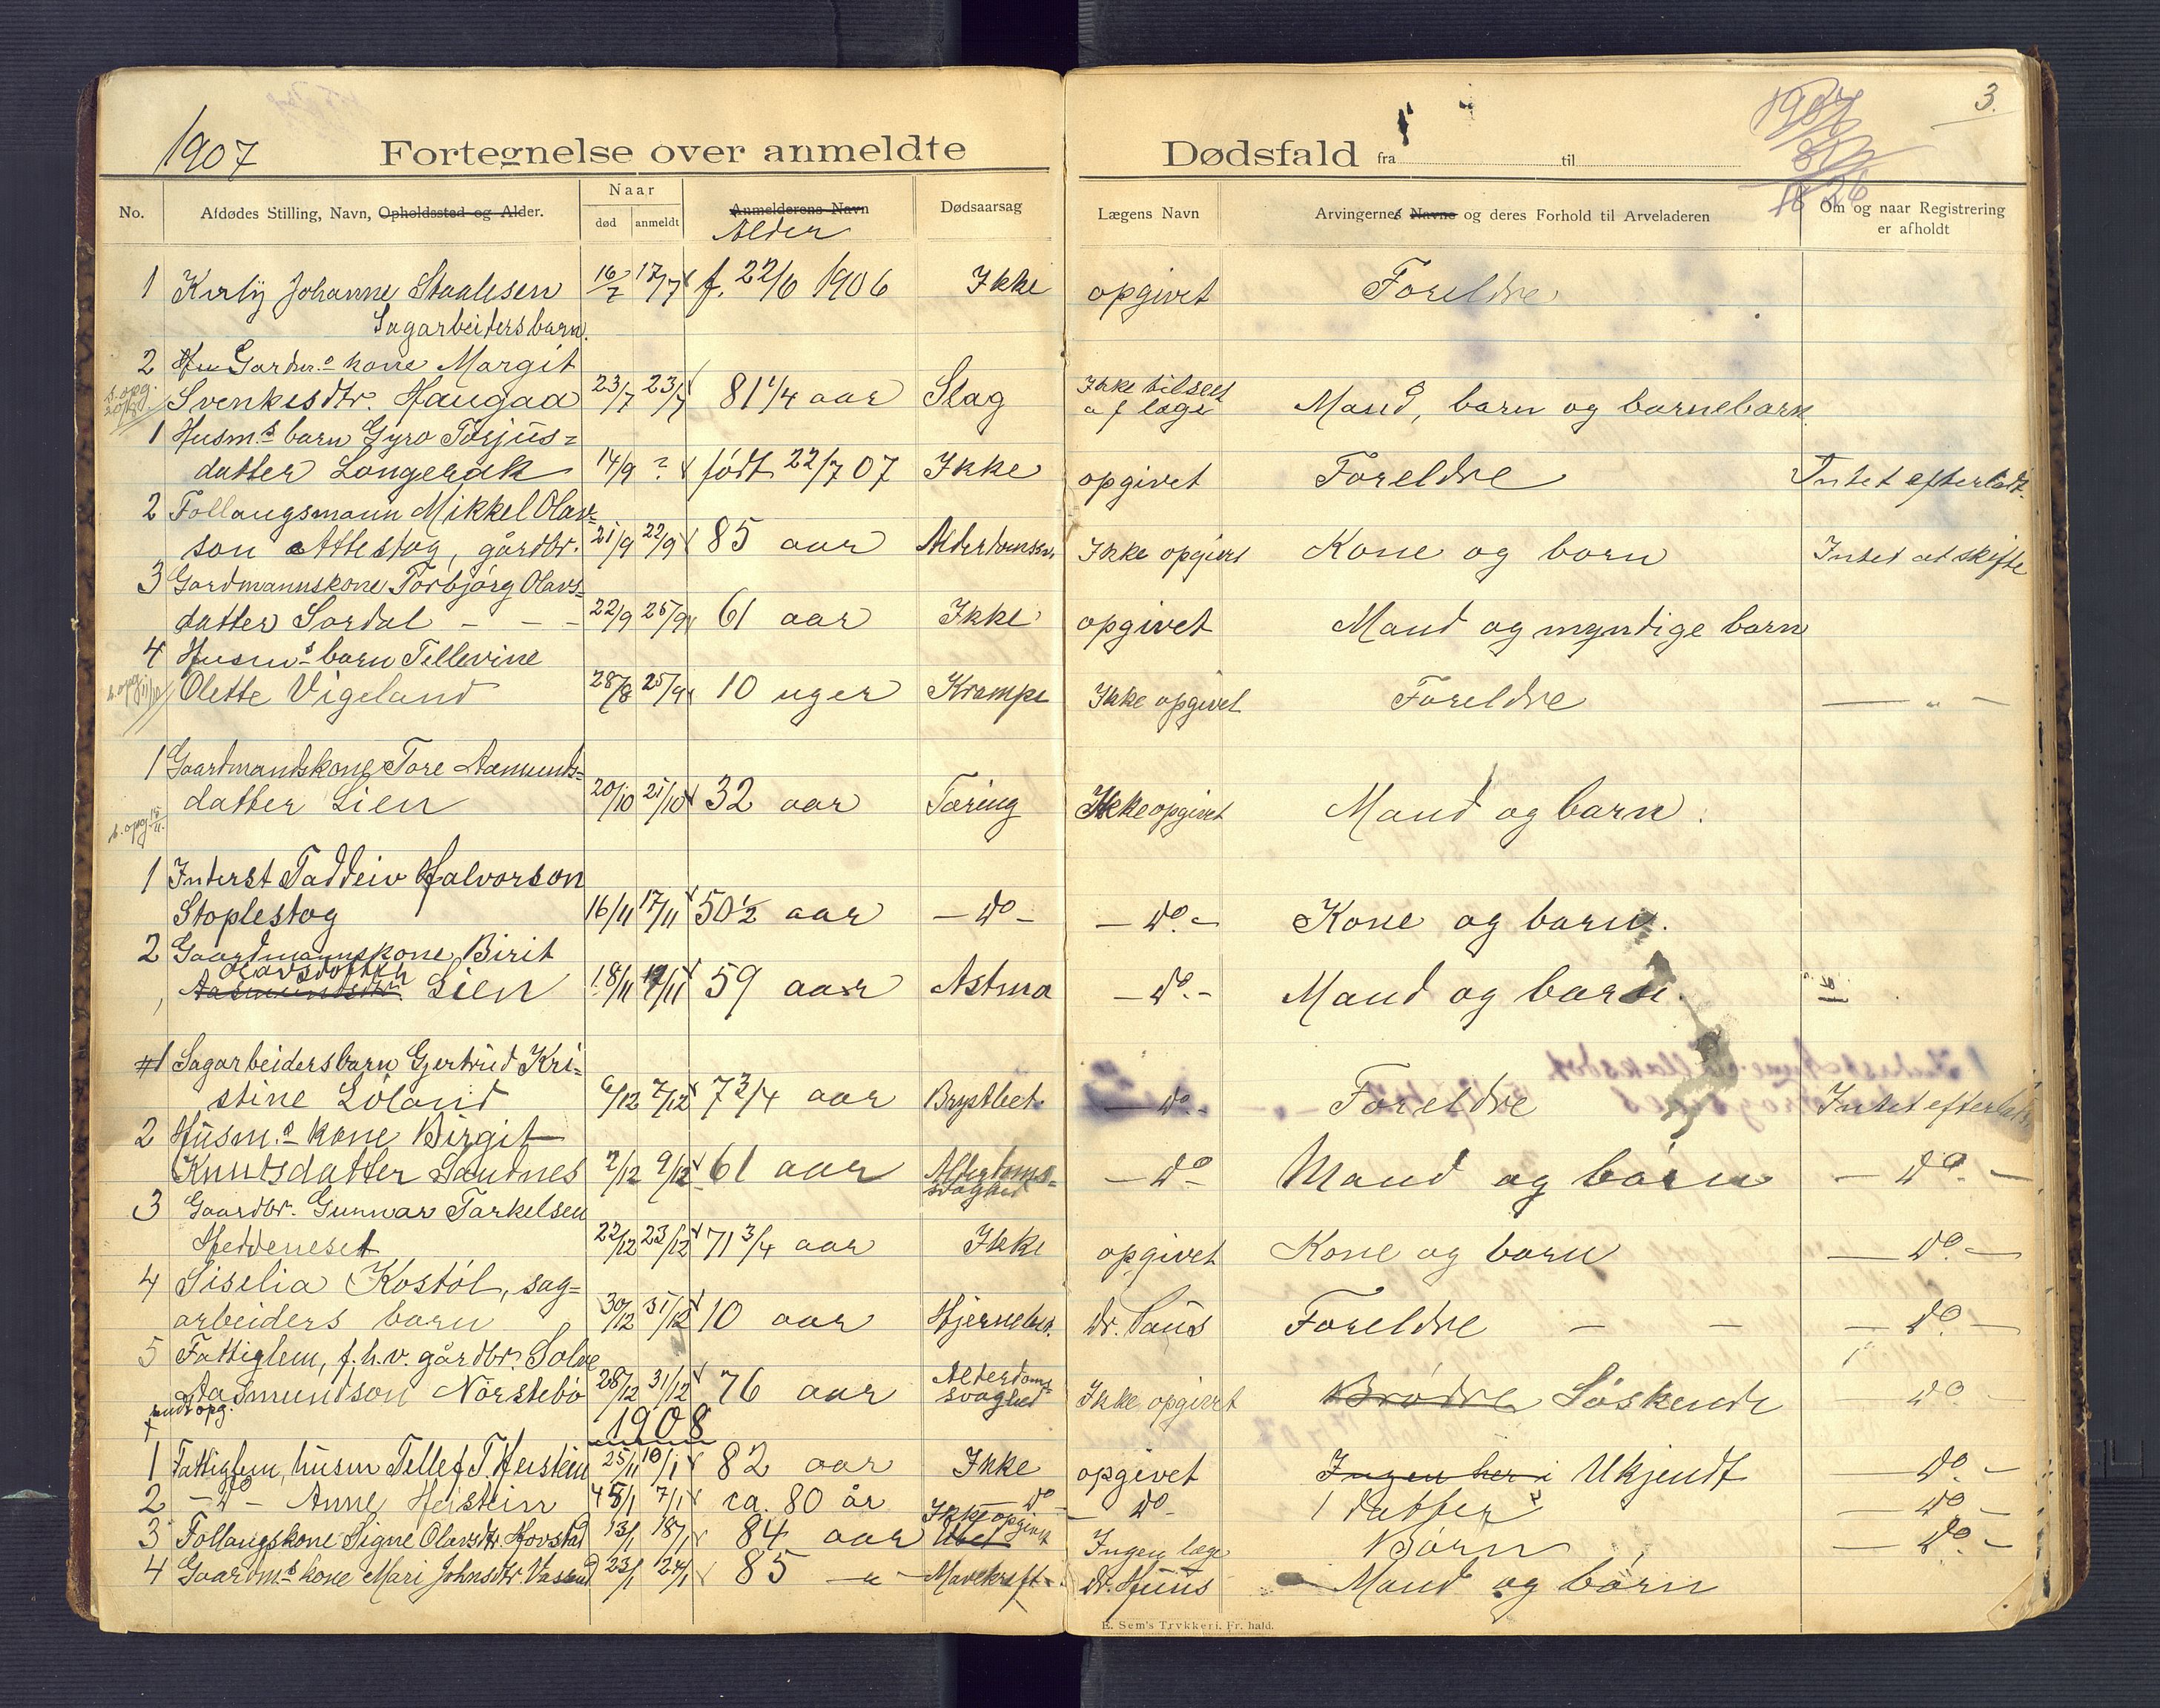 1907 Fortegnelse over anmeldte Dødsfald fra til 3.
No. Afdødes Stilling, Navn, Opholdssted og Alder. Naar død anmeldt Anmelderens Navn Alder Dødsaarsag Lægens Navn Arvingernes Navne og deres Forhold til Arveladeren Om og naar Registrering er afholdt
1 Johanne Staalesen 16/7 17/7 f. 22/6 1906 Ikke opgivet Foreldre
Sagarbeidersbarn.
2 Gardm.s kone Margit
Svenkesdtr. Haugaa 23/7 23/7 81 1/4 aar Slag Ikke tilseet af læge Mand, barn og barnebarn
1 Husm.s barn Gyro Torjus=
datter Longerak 14/9 ? født 22/7 07 Ikke opgivet Foreldre Intet efterladt.
2 Follaugsmann Mikkel Olav=
son Attestog, gårdbr. 21/9 22/9 85 aar Alderdomssv. Ikke opgivet Kone og born Intet at skifte
3 Gardmannskone Torbjørg Olavs=
datter Sordal - - - 22/9 25/9 61 aar Ikke opgivet Mand og myndige born
4 Husm.s barn Tellevine
Olette Vigeland 28/8 25/9 10 uger Krampe Ikke opgivet Foreldre — „ —
1 Gaardmandskone Tore Aamunds=
datter Lien 20/10 21/10 32 aar Tæring Ikke opgivet Mand og barn.
1 Inderst Taddeiv Halvorson
Stoplestog 16/11 17/11 50 1/2 aar - do - - do. - Kone og barn.
2 Gaardmannskone Birit
Olavsdotter Aasmundsdtr. Lien 18/11 19/11 59 aar Astma - do. - Mand og barn.
1 Sagarbeidersbarn Gjertrud Kri=
stine Löland 6/12 7/12 7 3/4 aar Brystbet. - do. - Foreldre Intet efterladt
2 Husm.s kone Birgit
Knutsdatter Sandnes 7/12 9/12 61 aar Alderdoms=svaghed - do - Mand og börn - do. -
3 Gaardbr. Gunnar Tarkelsen
Heddeneset 22/12 23/12 71 3/4 aar Ikke opgivet Kone og born - do. -
4 Siselia Kostöl, sag=
arbeiders barn 30/12 31/12 10 aar Hjernebet. Dr. Foreldre - - - do. -
5 Fattiglem, f.h.v. gårdbr. Solve
Aasmundson Nörstebö 28/12 31/12 76 aar Alderdoms=svaghed Ikke opgivet Brødre Söskende - do -
1908
1 Fattiglem, husm Tellef T. Heistein 25/11 10/1 82 aar Ikke opgivet Ingen her i Ukjendt - do. -
2 - do - Anne Heistein 5/1 7/1 ca. 80 år - do - - do - 1 datter - do -
3 Follaugskone Signe Olavsdtr. Hovstad 13/1 18/1 84 aar Ikke opgivet Ingen læge Børn - do. -
4 Gaardm.s kone Mari Johnsdtr. 23/1 24/1 85 - „ - Mavekræft Dr. Mand og börn
E. Sem's Trykkeri, Fr. hald.